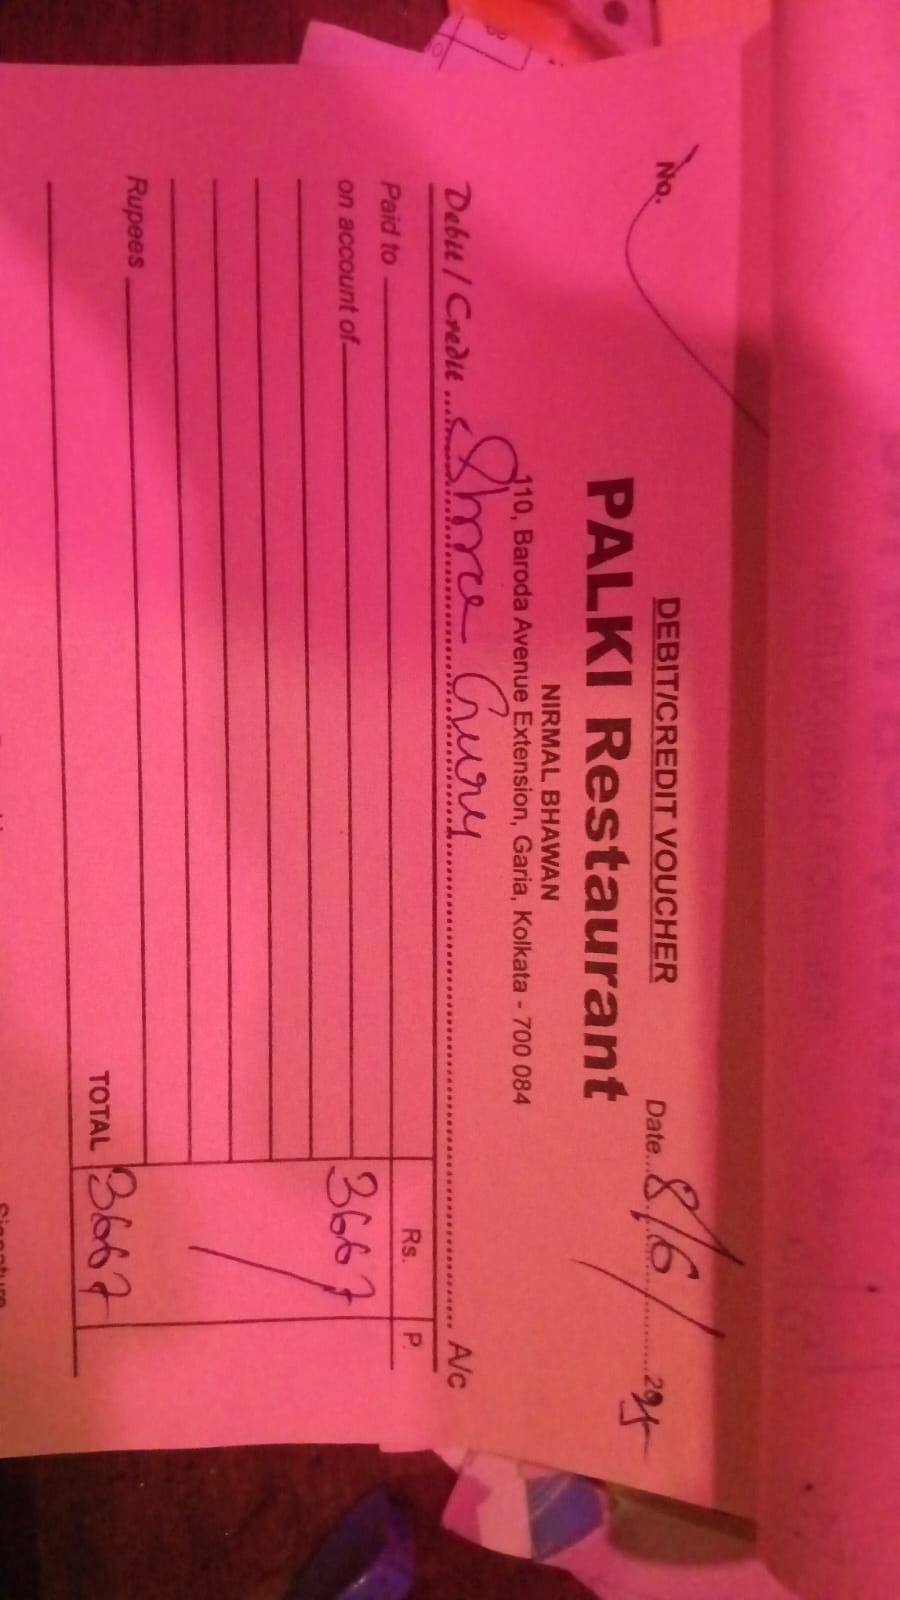 DEBIT/CREDIT VOUCHER
No. Date...8/6/...2025
PALKI Restaurant
NIRMAL BHAWAN
110, Baroda Avenue Extension, Garia, Kolkata - 700 084
Debit / Credit ... Shree Guru ... A/c
Rs. P.
Paid to
on account of 3667
Rupees
TOTAL 3667
Signature